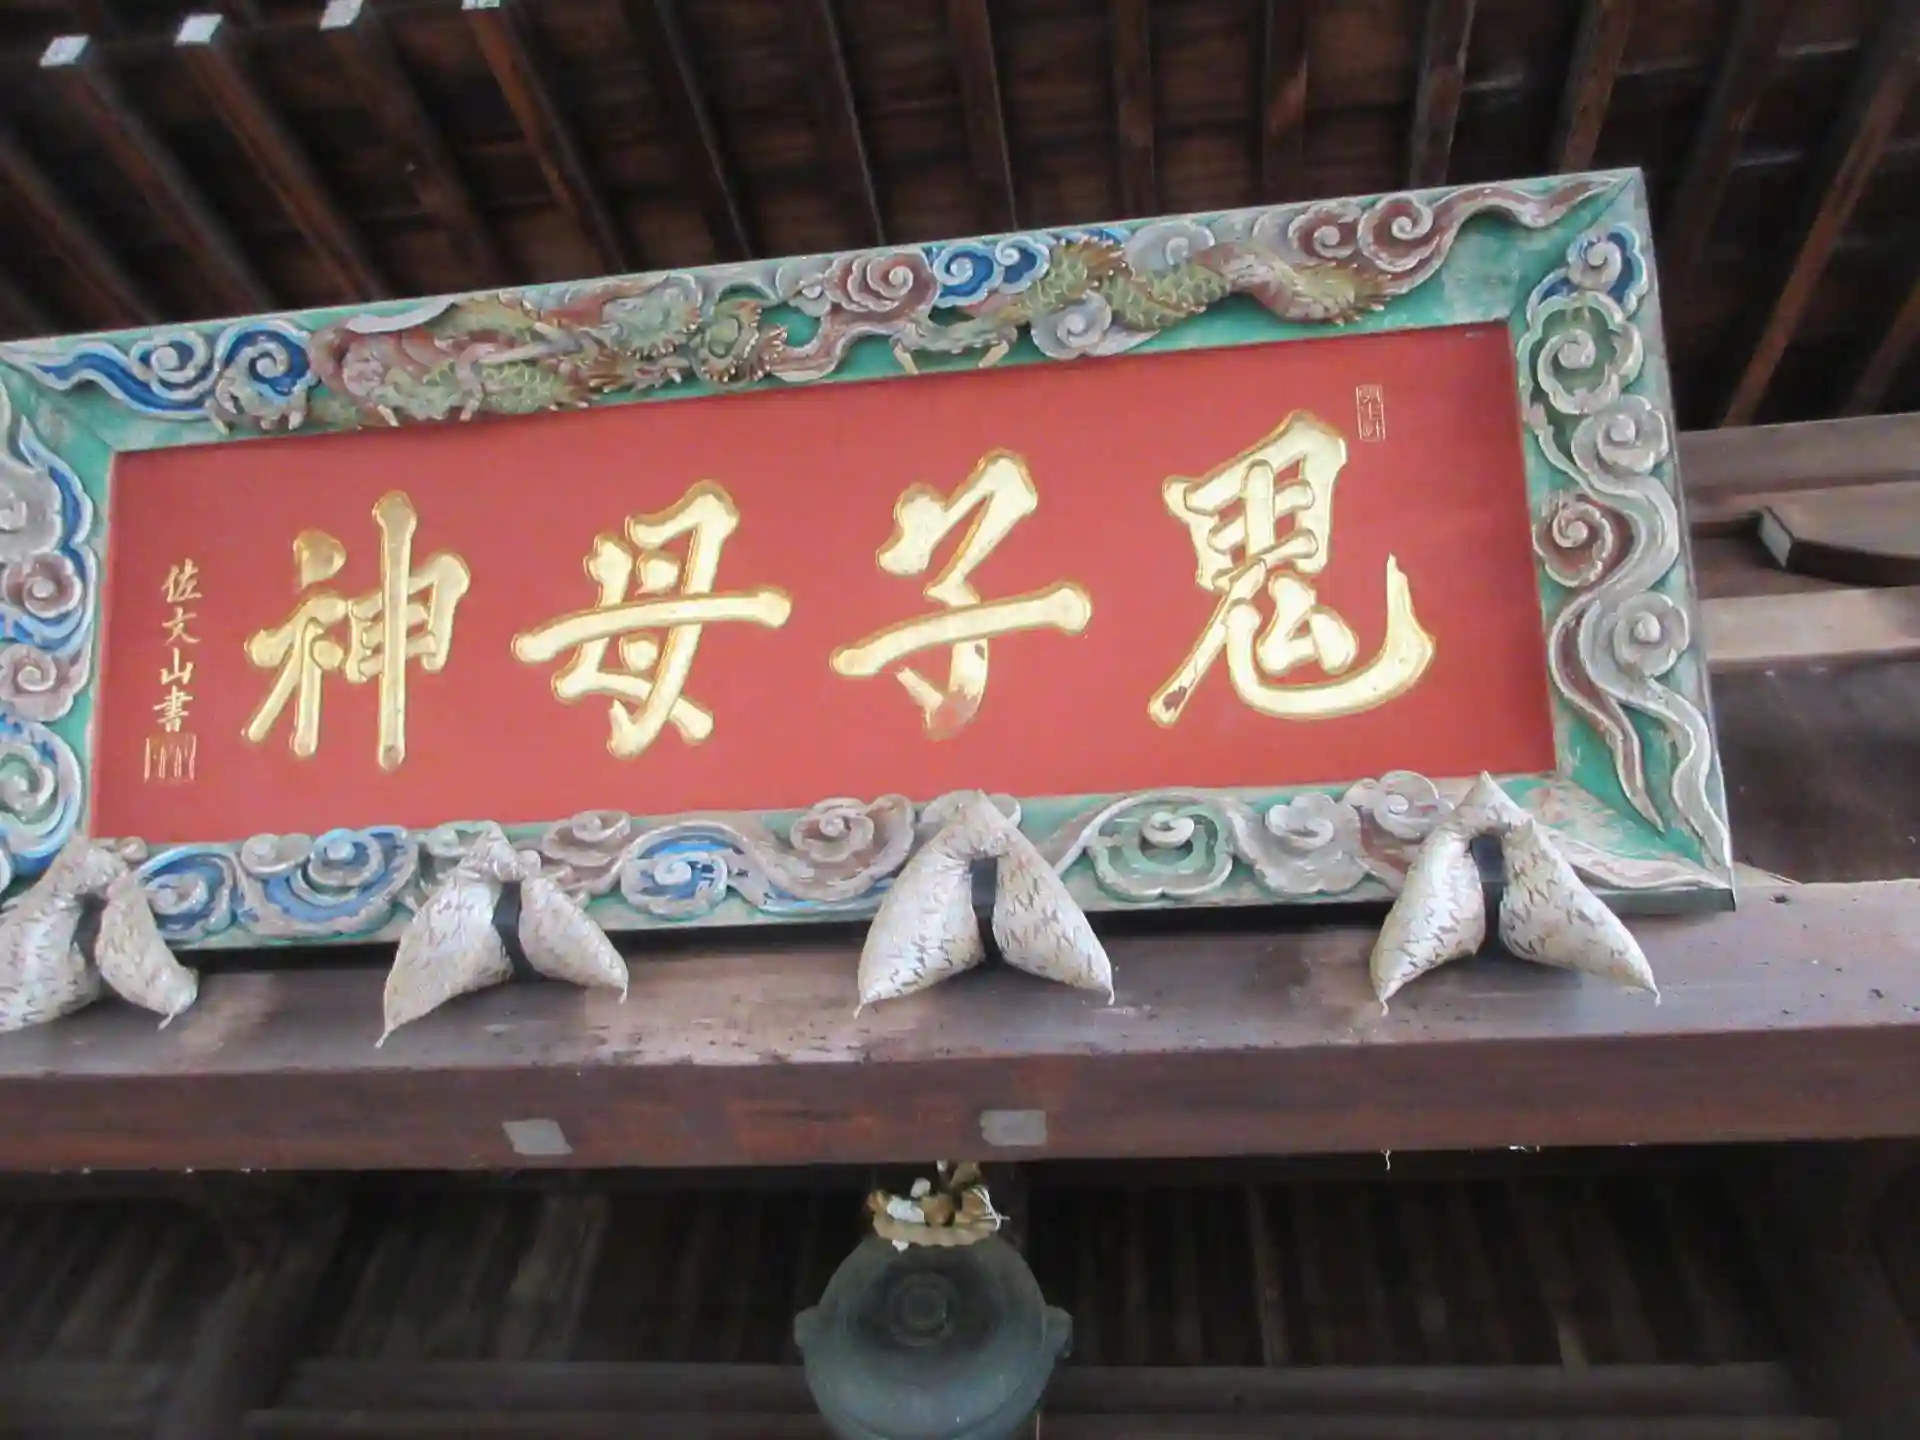 鬼子母神
佐文山書